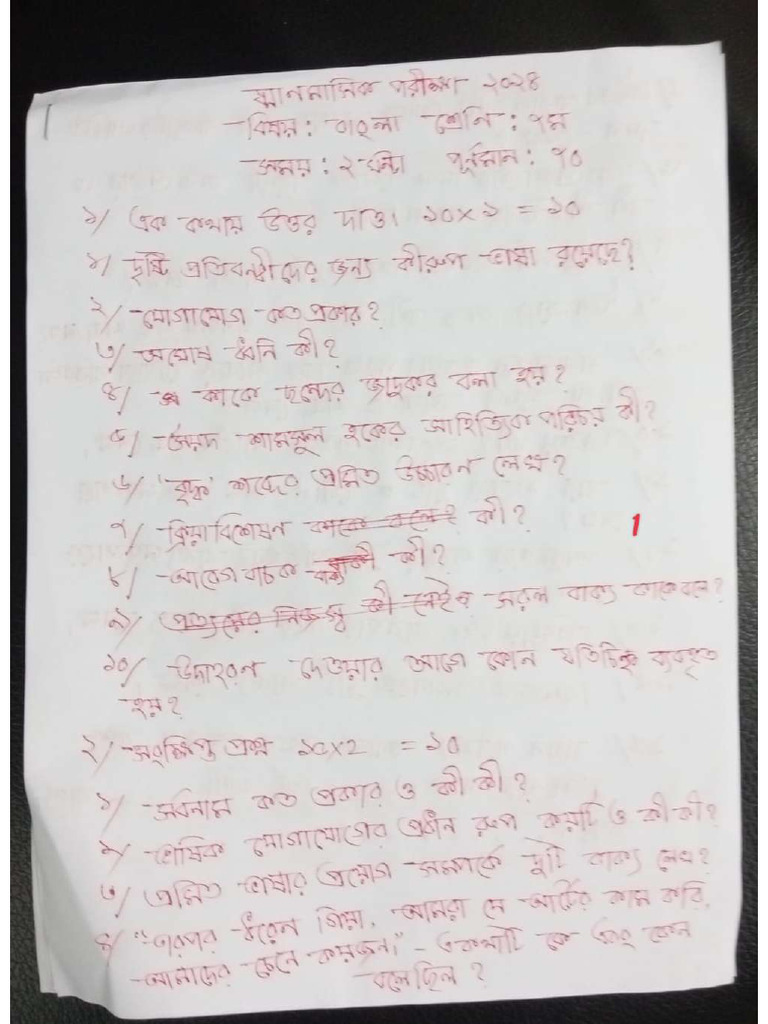 ষাণ্মাসিক পরীক্ষা ২০২৪
বিষয় : বাংলা শ্রেণি : ৭ম
সময় : ২ ঘন্টা পূর্ণমান : ৭০
১/ এক কথায় উত্তর দাও। ১০×১ = ১০
১/ দৃষ্টি প্রতিবন্ধীদের জন্য কীরূপ ভাষা রয়েছে?
২/ যোগাযোগ কত প্রকার?
৩/ অঘোষ ধ্বনি কী?
৪/ কাকে ছন্দের জাদুকর বলা হয়?
৫/ সৈয়দ শামসুল হকের সাহিত্যিক পরিচয় কী?
৬/ 'বৃক্ষ' শব্দের প্রমিত উচ্চারণ লেখ?
৭/ ক্রিয়াবিশেষণ কাকে বলে? কী?
1
৮/ আবেগ বাচক বাক্য কী?
৯/ প্রত্যয়ের নিজস্ব কী নেই? সরল বাক্য কাকে বলে?
১০/ উদাহরণ দেওয়ার আগে কোন যতিচিহ্ন ব্যবহৃত
হয়?
২/ সংক্ষিপ্ত প্রশ্ন ১০×2 = ২০
১/ সর্বনাম কত প্রকার ও কী কী?
২/ ভাষিক যোগাযোগের প্রধান রূপ কয়টি ও কী কী?
৩/ প্রমিত ভাষার প্রয়োগ সম্পর্কে দুটি বাক্য লেখ?
৪/ "তারপর ধরেন গিয়া, আমরা যে আর্টের কাম করি,
আমাদের চেনে কয়জন।" - একথাটি কে এবং কেন
বলেছিল?